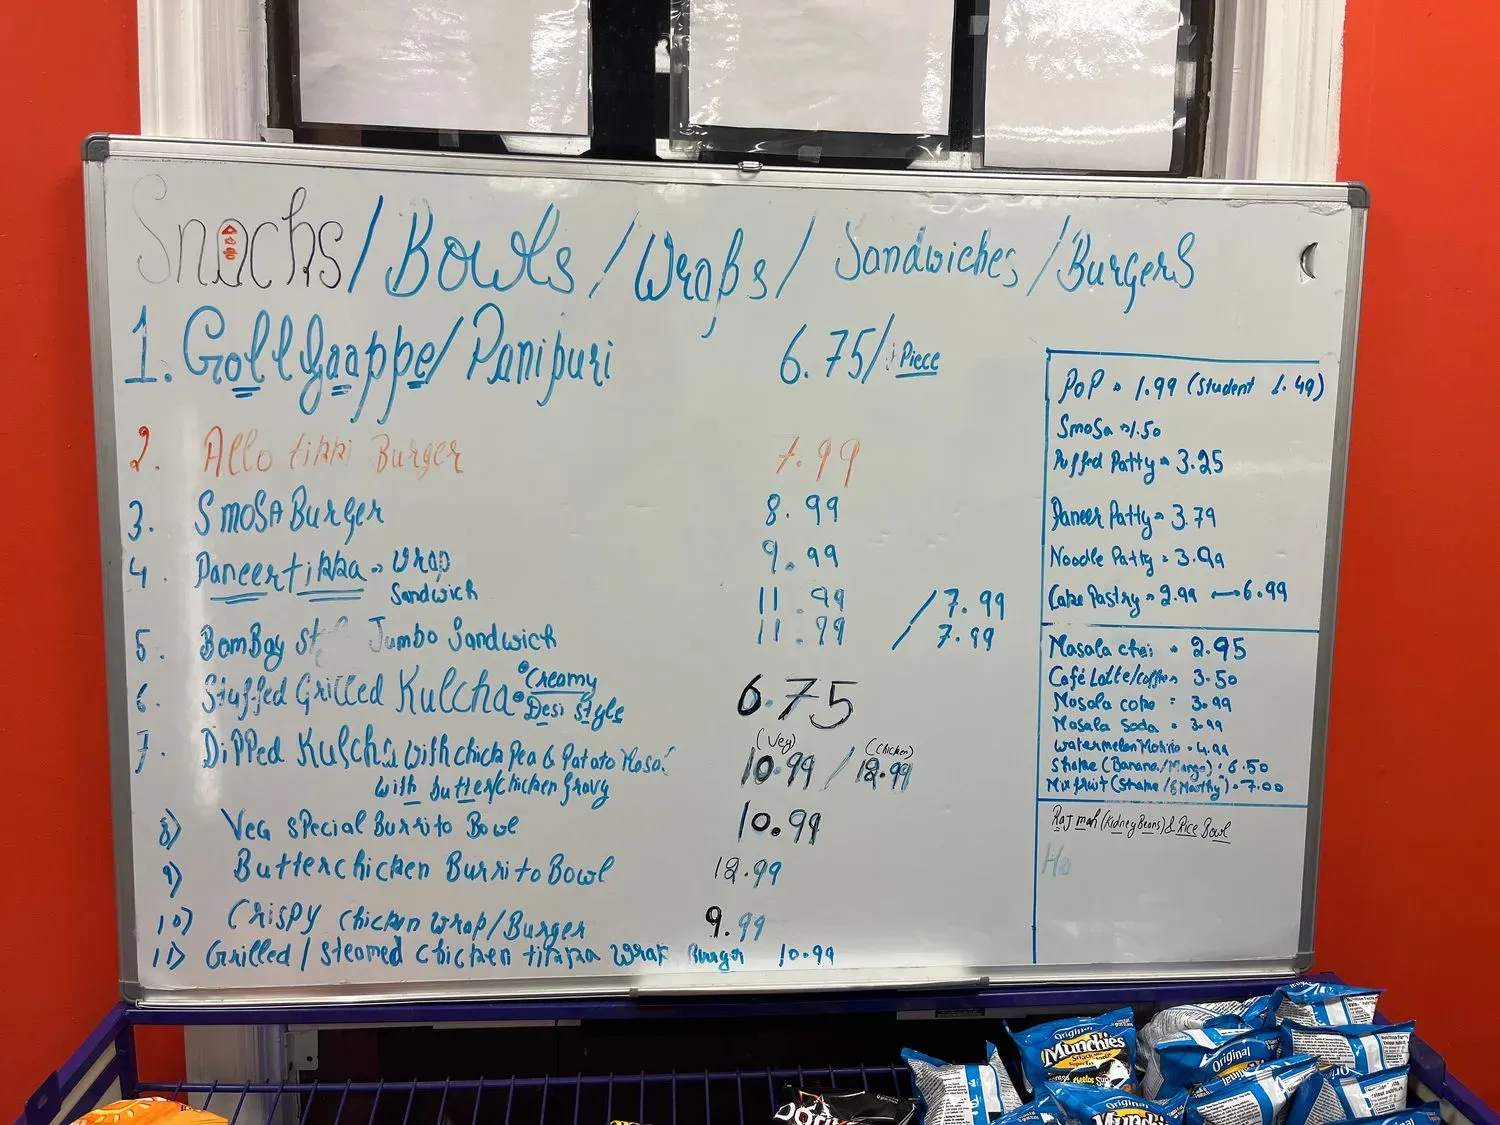 Snacks/Bowls/Wraps/Sandwiches/Burgers
1. Gollgaappe/Panipuri 6.75/ Piece
2. Allo tikki Burger 7.99
3. SmoSA Burger 8.99
4. Paneer tikka Wrap 9.99
Sandwich 11.99 / 7.99
5. BomBay Jumbo Sandwich 11.99 / 7.99
6. Stuffed Grilled Kulcha Creamy 6.75
Desi style
7. Dipped Kulcha with chick Pea & Patato (Veg) 10.99 / (Chicken) 12.99
with butter/chicken Gravy
8) Veg special Burrito Bowl 10.99
9) Butterchicken Burrito Bowl 12.99
10) Crispy chicken wrap/Burger 9.99
11) Grilled/steamed chicken tikka wrap Burger 10.99
PoP = 1.99 (Student 1.49)
Smosa = 1.50
Puffed Patty = 3.25
Paneer Patty = 3.79
Noodle Patty = 3.99
Cake Pastry = 2.99 — 6.99
Masala chai = 2.95
Café Latte/coffee = 3.50
Masala coke = 3.99
Masala Soda = 3.99
Watermelon Mohito = 4.99
Shake (Banana/Mango) = 6.50
Mix fruit (Shake/Smoothy) = 7.00
Rajmah (Kidney Beans) & Rice Bowl
Ho
Original
Munchies
Original
Original
Munchies